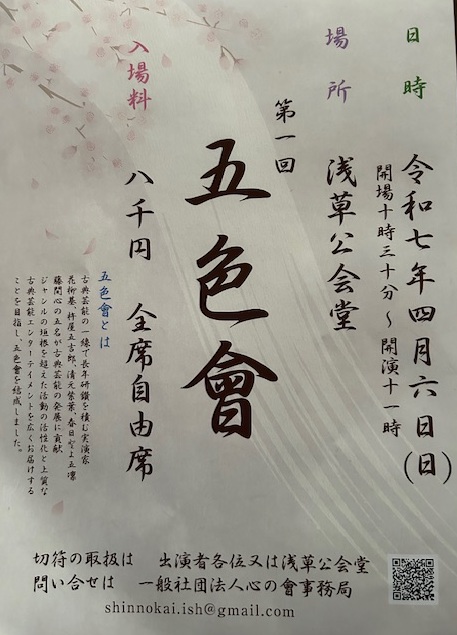 日時
令和七年四月六日(日)
開場十時三十分～開演十一時
場所
浅草公会堂
第一回
五色會
入場料
八千円 全席自由席
五色會とは
古典芸能の一線で長年研鑽を積む実演家
花柳基、杵屋五吉郎、清元紫葉、春日とよ五凛
藤間心の五名が古典芸能の発展に貢献
ジャンルの垣根を超えた活動の活性化と上質な
古典芸能エンターテイメントを広くお届けする
ことを目指し、五色會を結成しました。
切符の取扱は 出演者各位又は浅草公会堂
問い合せは 一般社団法人心の會事務局
shinnokai.ish@gmail.com